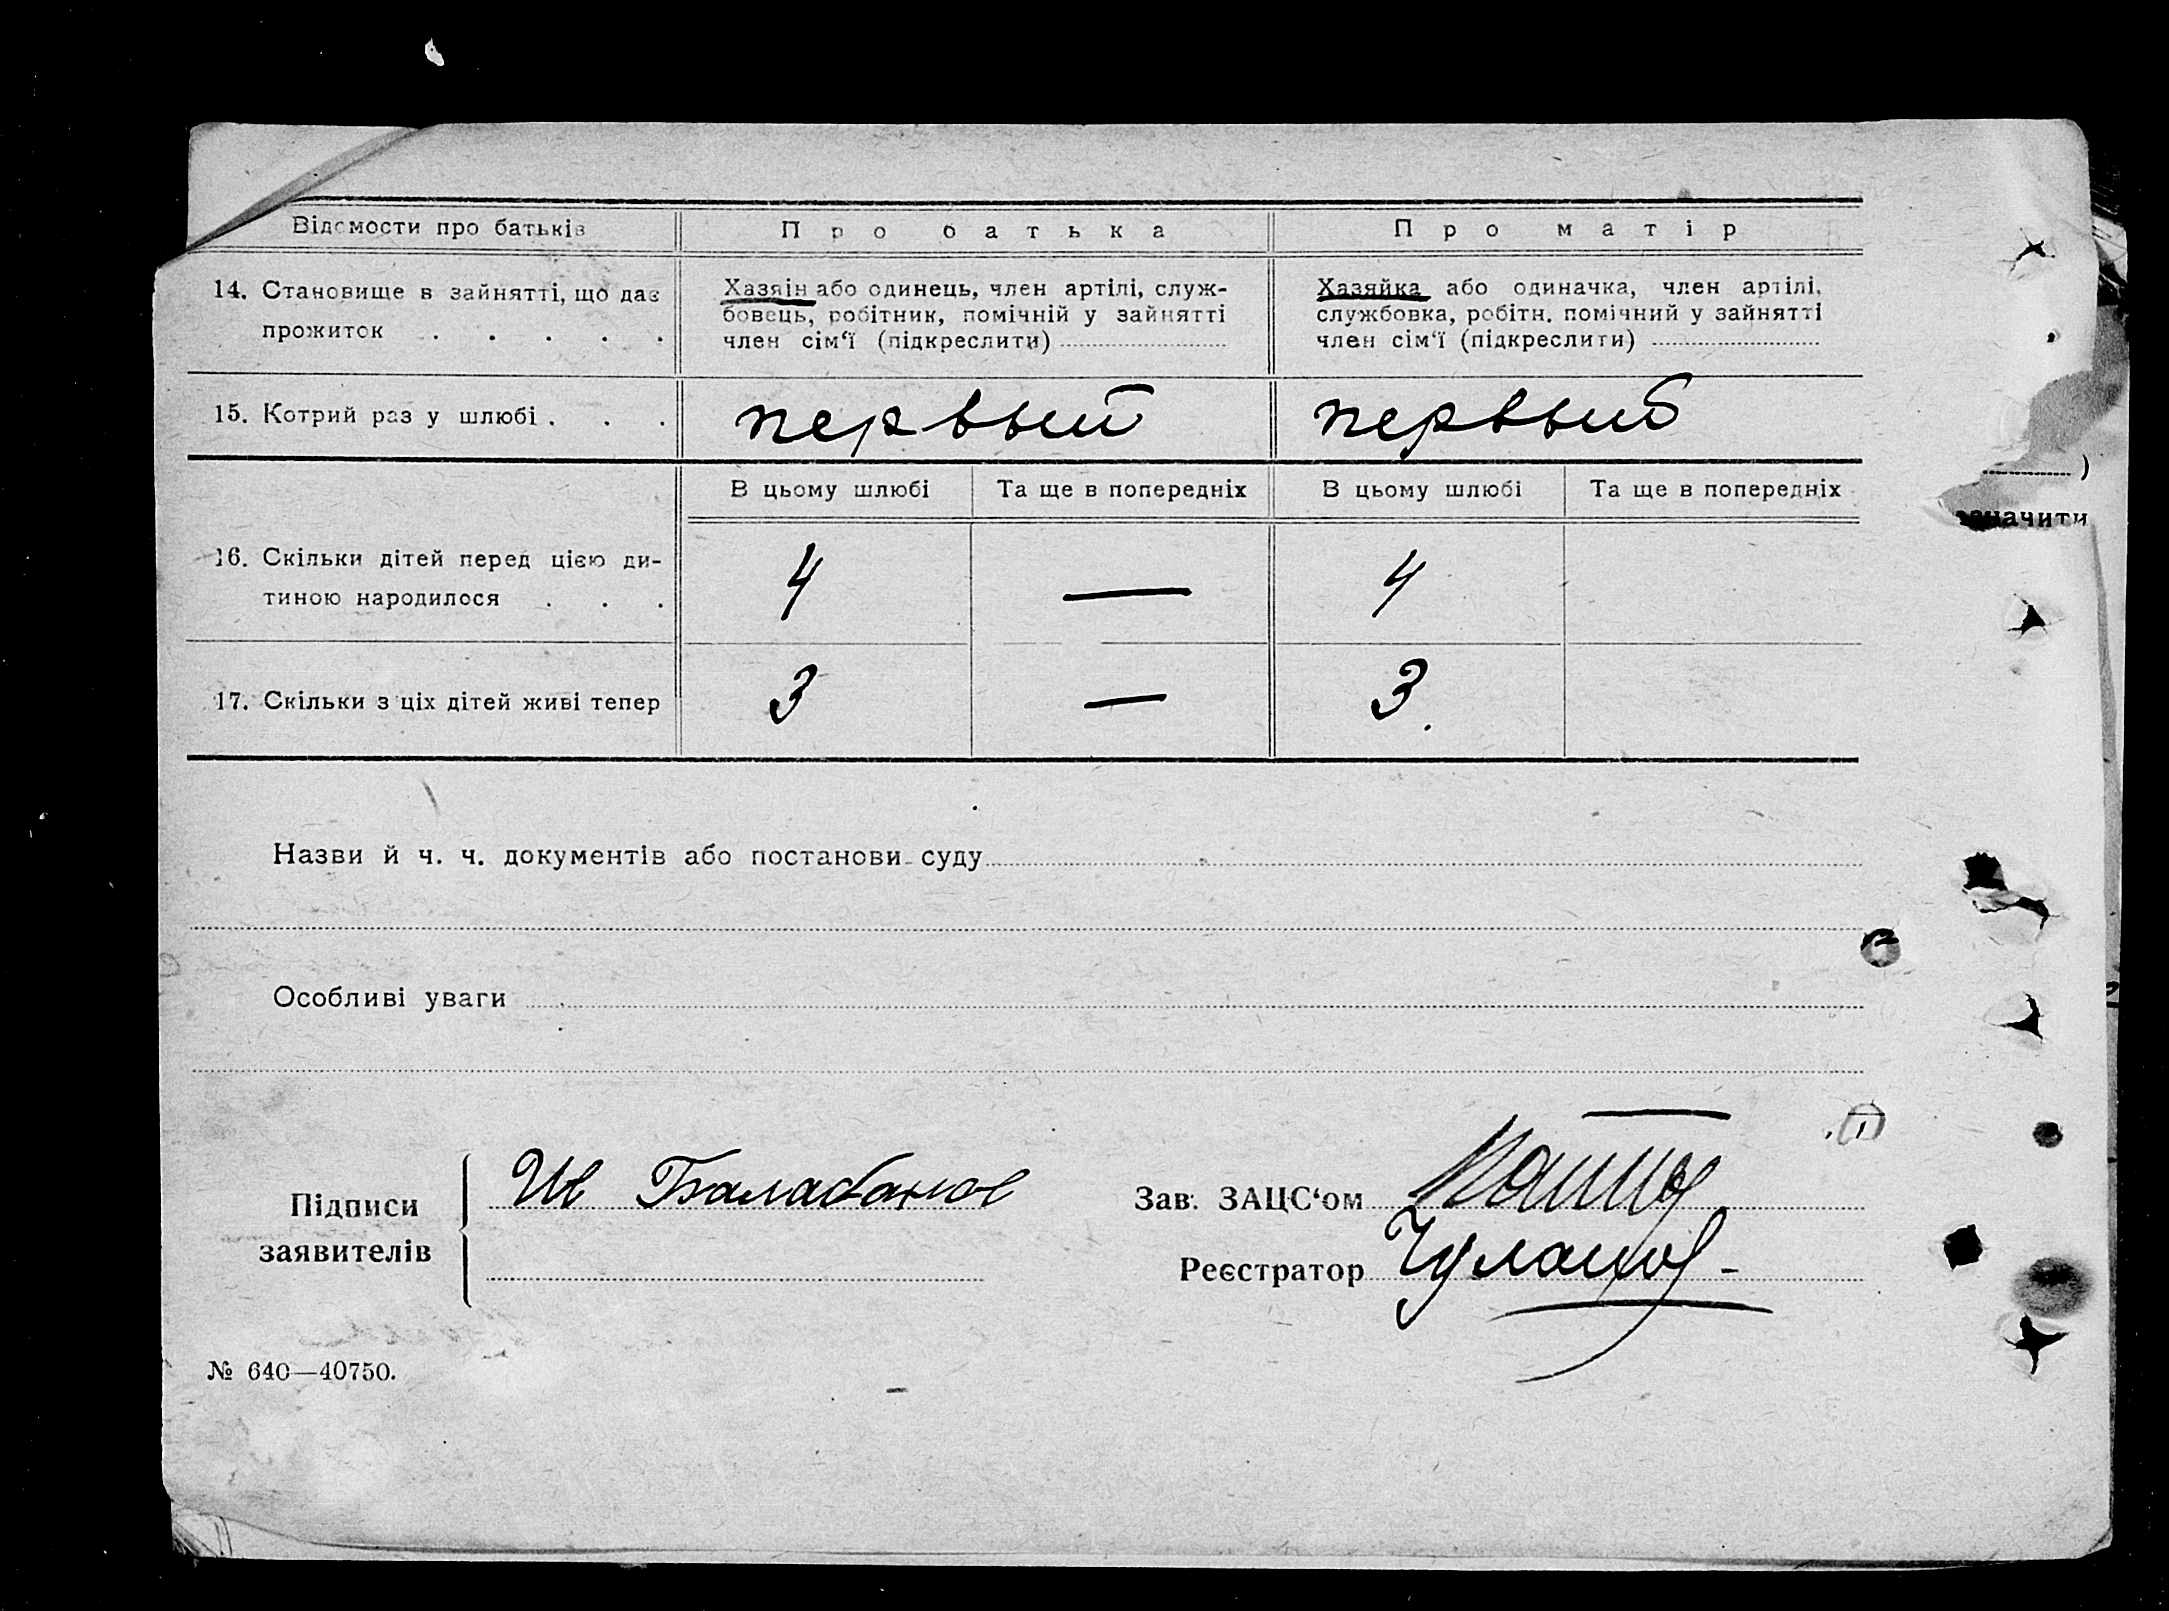 Відомости про батьків
Про батька
Про матір
14. Становище в зайнятті, що дає
прожиток . . . . .
Хазяїн або одинець, член артілі, служ-
бовець, робітник, помічній у зайнятті
член сім‘ї (підкреслити)
Хазяйка або одиначка, член артілі,
службовка, робітн. помічний у зайнятті
член сім‘ї (підкреслити)
15. Котрий раз у шлюбі . . .
первый
первый
)
В цьому шлюбі
Та ще в попередніх
В цьому шлюбі
Та ще в попередніх
16. Скільки дітей перед цією ди-
тиною народилося . . .
4
—
4
17. Скільки з ціх дітей живі тепер
3
—
3.
Назви й ч. ч. документів або постанови суду
Особливі уваги
Підписи
заявителів
Ив Балабанов
Зав. ЗАЦС‘ом
Реєстратор
№ 640—40750.